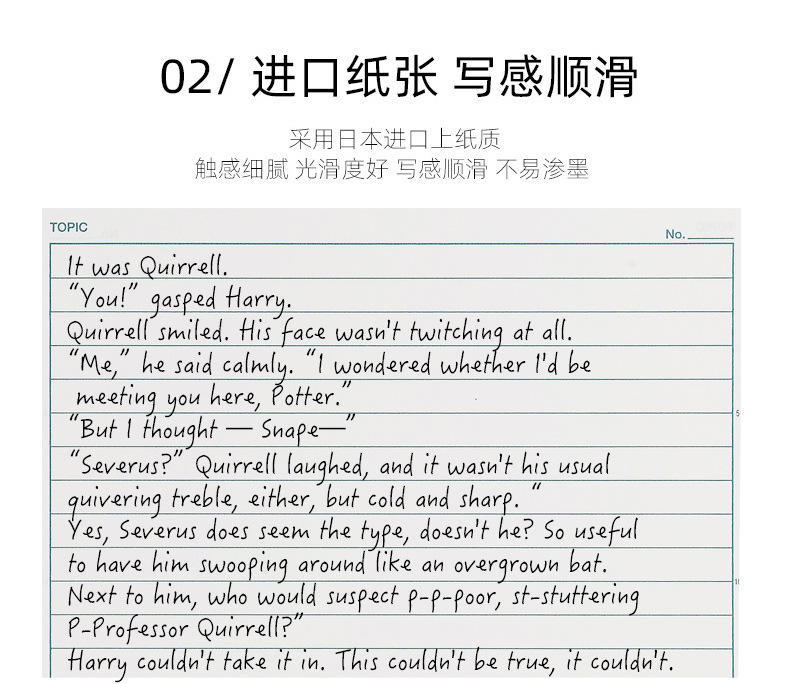 02/ 进口纸张 写感顺滑
采用日本进口上纸质
触感细腻 光滑度好 写感顺滑 不易渗墨
TOPIC
No.
It was Quirrell.
“You!” gasped Harry.
Quirrell smiled. His face wasn't twitching at all.
“Me,” he said calmly. “I wondered whether I'd be
meeting you here, Potter.”
“But I thought — Snape—”
“Severus?” Quirrell laughed, and it wasn't his usual
quivering treble, either, but cold and sharp. “
Yes, Severus does seem the type, doesn't he? So useful
to have him swooping around like an overgrown bat.
Next to him, who would suspect p-p-poor, st-stuttering
P-Professor Quirrell?”
Harry couldn't take it in. This couldn't be true, it couldn't.
5
10